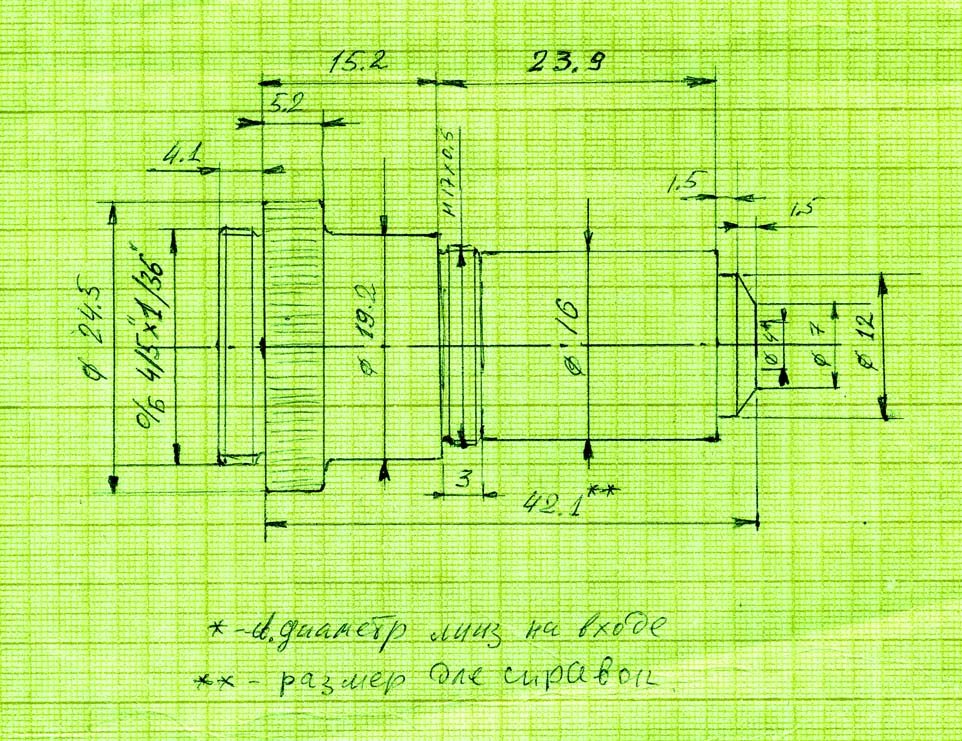 15.2
23.9
5.2
4.1
М17х0,5
1.5
1.5
ф 24.5
О/Б 4/5"х1/36"
ф 19.2
ф 16
ф 7
ф 12
3
42.1**
* - д.диаметр линз на входе
** - размер для справок